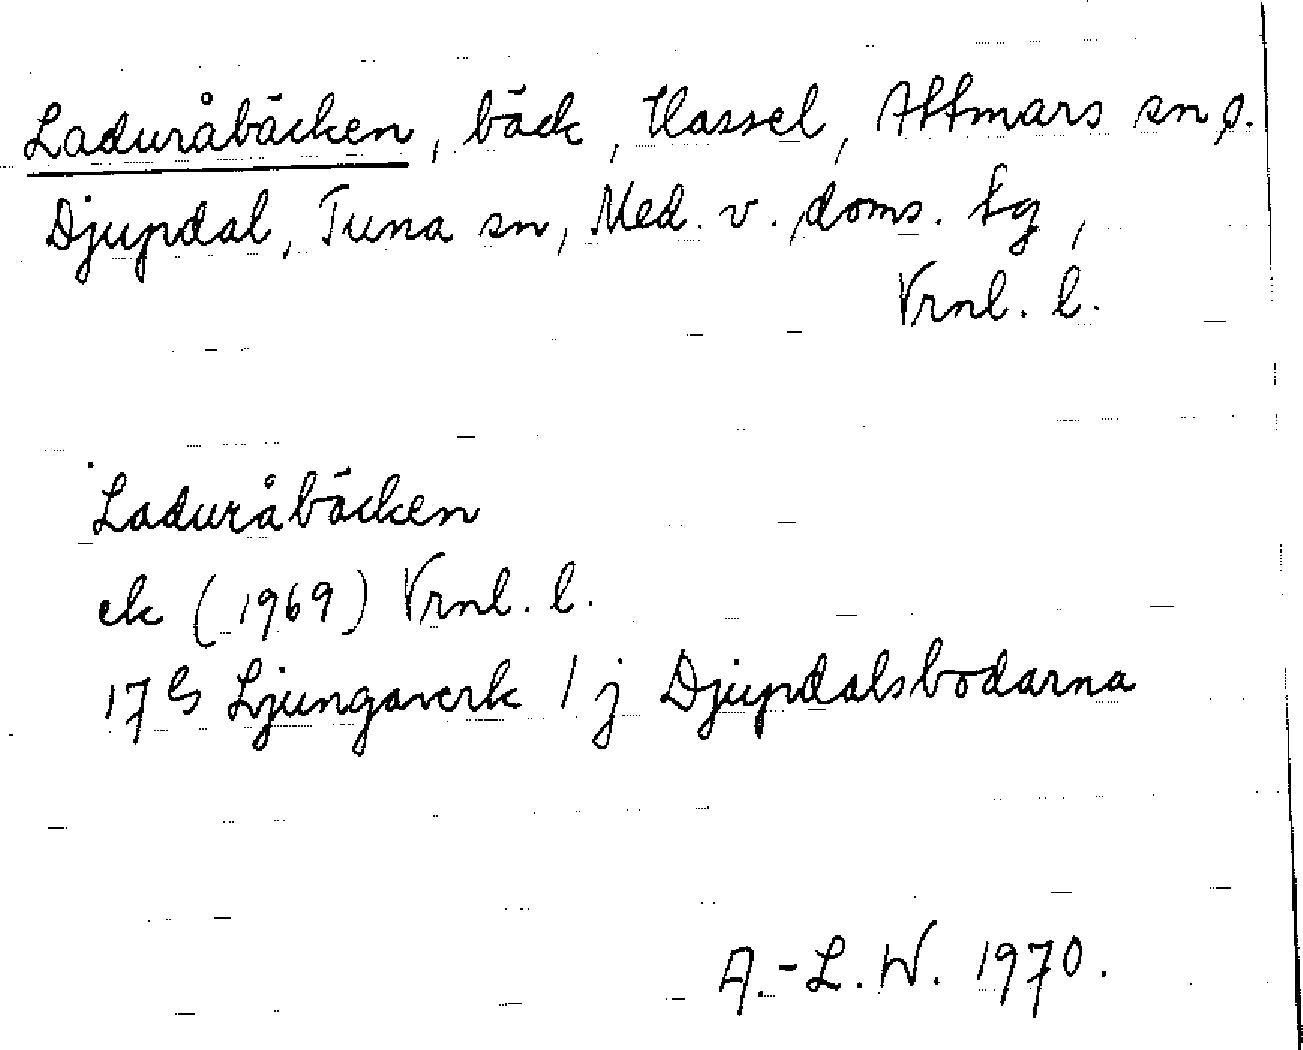 Laduråbäcken, bäck, Hassel, Attmars sn o.
Djupdal, Tuna sn, Med. v. doms. tg,
Vrnl. l.
Laduråbäcken
ek (1969) Vrnl. l.
17 G Ljungaverk 1 j Djupdalsbodarna
A.-L. W. 1970.